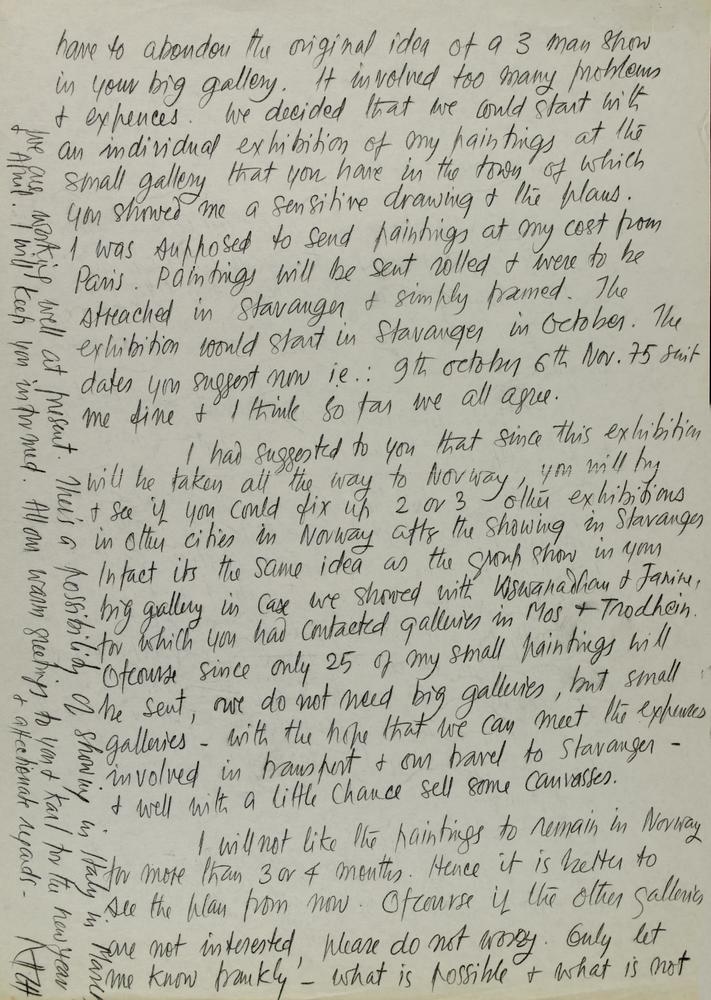 have to abandon the original idea of a 3 man show
in your big gallery. It involved too many problems
& expences. We decided that we could start with
an individual exhibition of my paintings at the
small gallery that you have in the town, of which
you showed me a sensitive drawing & the plans.
I was supposed to send paintings at my cost from
Paris. Paintings will be sent rolled & were to be
streached in Stavanger & simply framed. The
exhibition would start in Stavanger in October. The
dates you suggest now i.e.: 9th october 6th Nov. 75 suit
me fine & I think so far we all agree.
I had suggested to you that since this exhibition
will be taken all the way to Norway, you will try
& see if you could fix up 2 or 3 other exhibitions
in other cities in Norway after the showing in Stavanger
Infact its the same idea as the group show in your
big gallery in case we showed with Viswanadhan & Janine,
for which you had contacted galleries in Mos & Trodhein.
Ofcourse since only 25 of my small paintings will
be sent, we do not need big galleries, but small
galleries - with the hope that we can meet the expences
involved in transport & our travel to Stavanger -
& well with a little chance sell some canvasses.
I will not like the paintings to remain in Norway
for more than 3 or 4 months. Hence it is better to
see the plan from now. Ofcourse if the other galleries
are not interested, please do not worry. Only let
me know frankly - what is possible & what is not
We are working well at present. There's a possibility of showing in Italy in March
April. I will keep you informed. All our warm greetings to you & Karl for the new year
& affectionate regards -